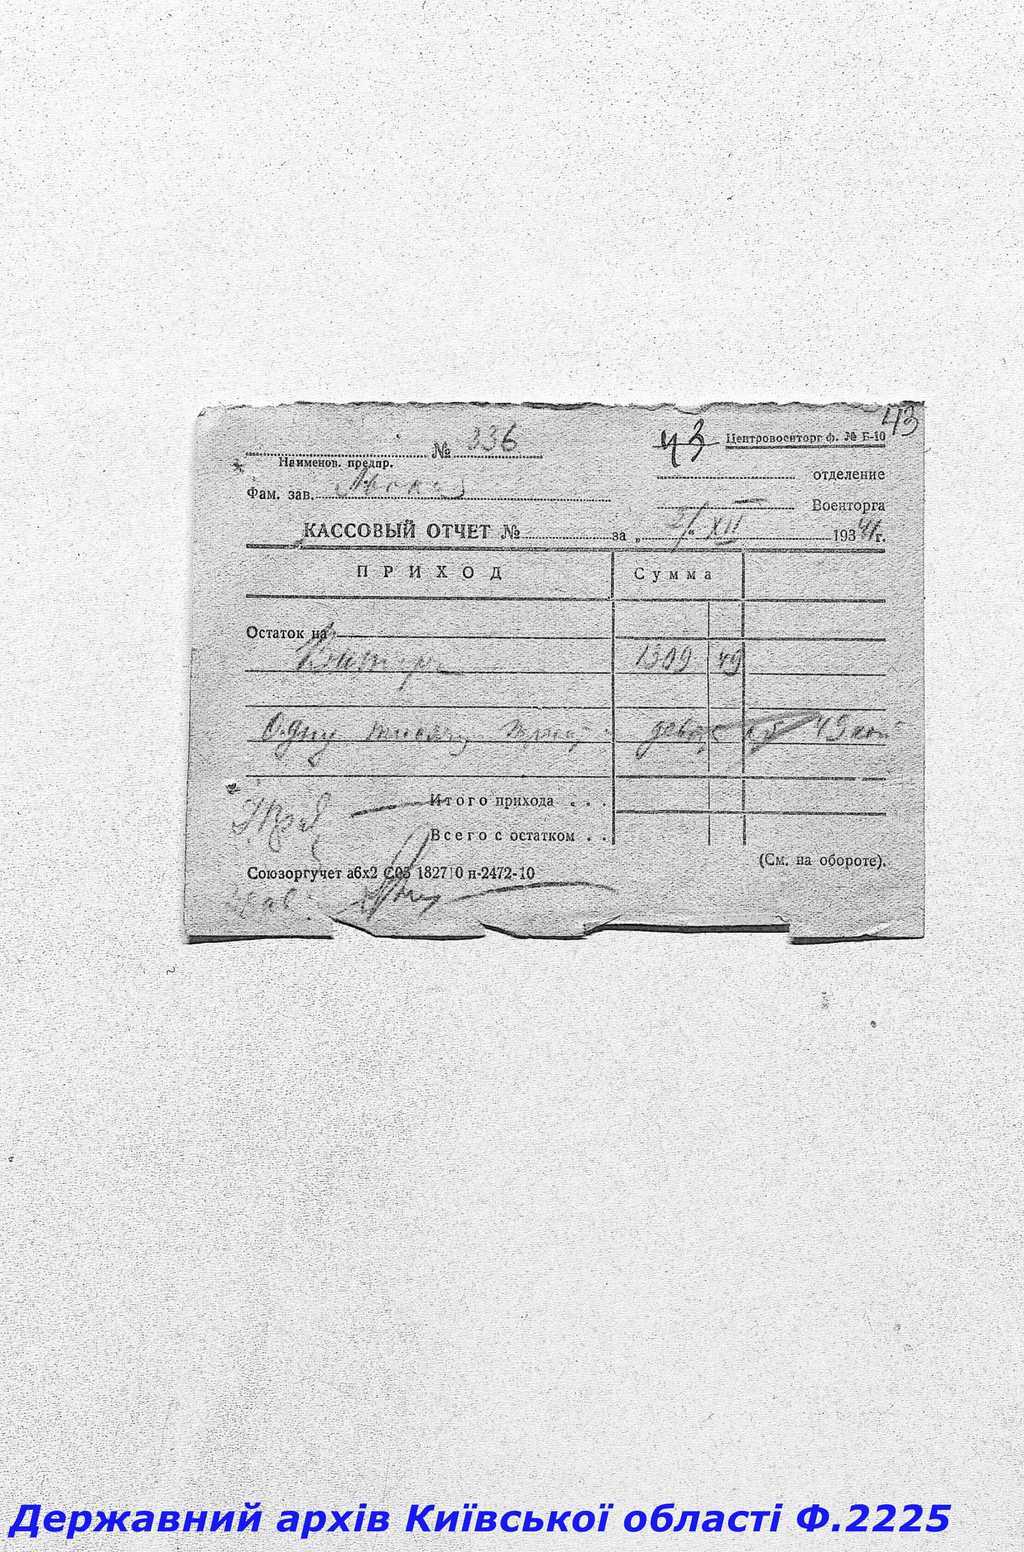 43
43 Центровоенторг ф. № Б-10
№ 336
Наименов. предпр. отделение
Фам. зав.
Военторга
КАССОВЫЙ ОТЧЕТ № за „ 2/XII 193 41 г.
ПРИХОД Сумма
Остаток на
1309 49
Одну тысячу девять 49 коп
Итого прихода . . .
Всего с остатком . .
(См. на обороте).
Союзоргучет а6х2 С03 182710 н-2472-10
Державний архів Київської області Ф.2225